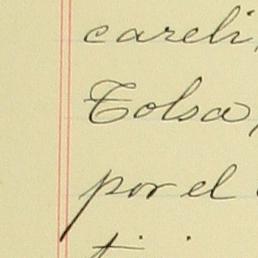 careli,
Tolsa,
por el